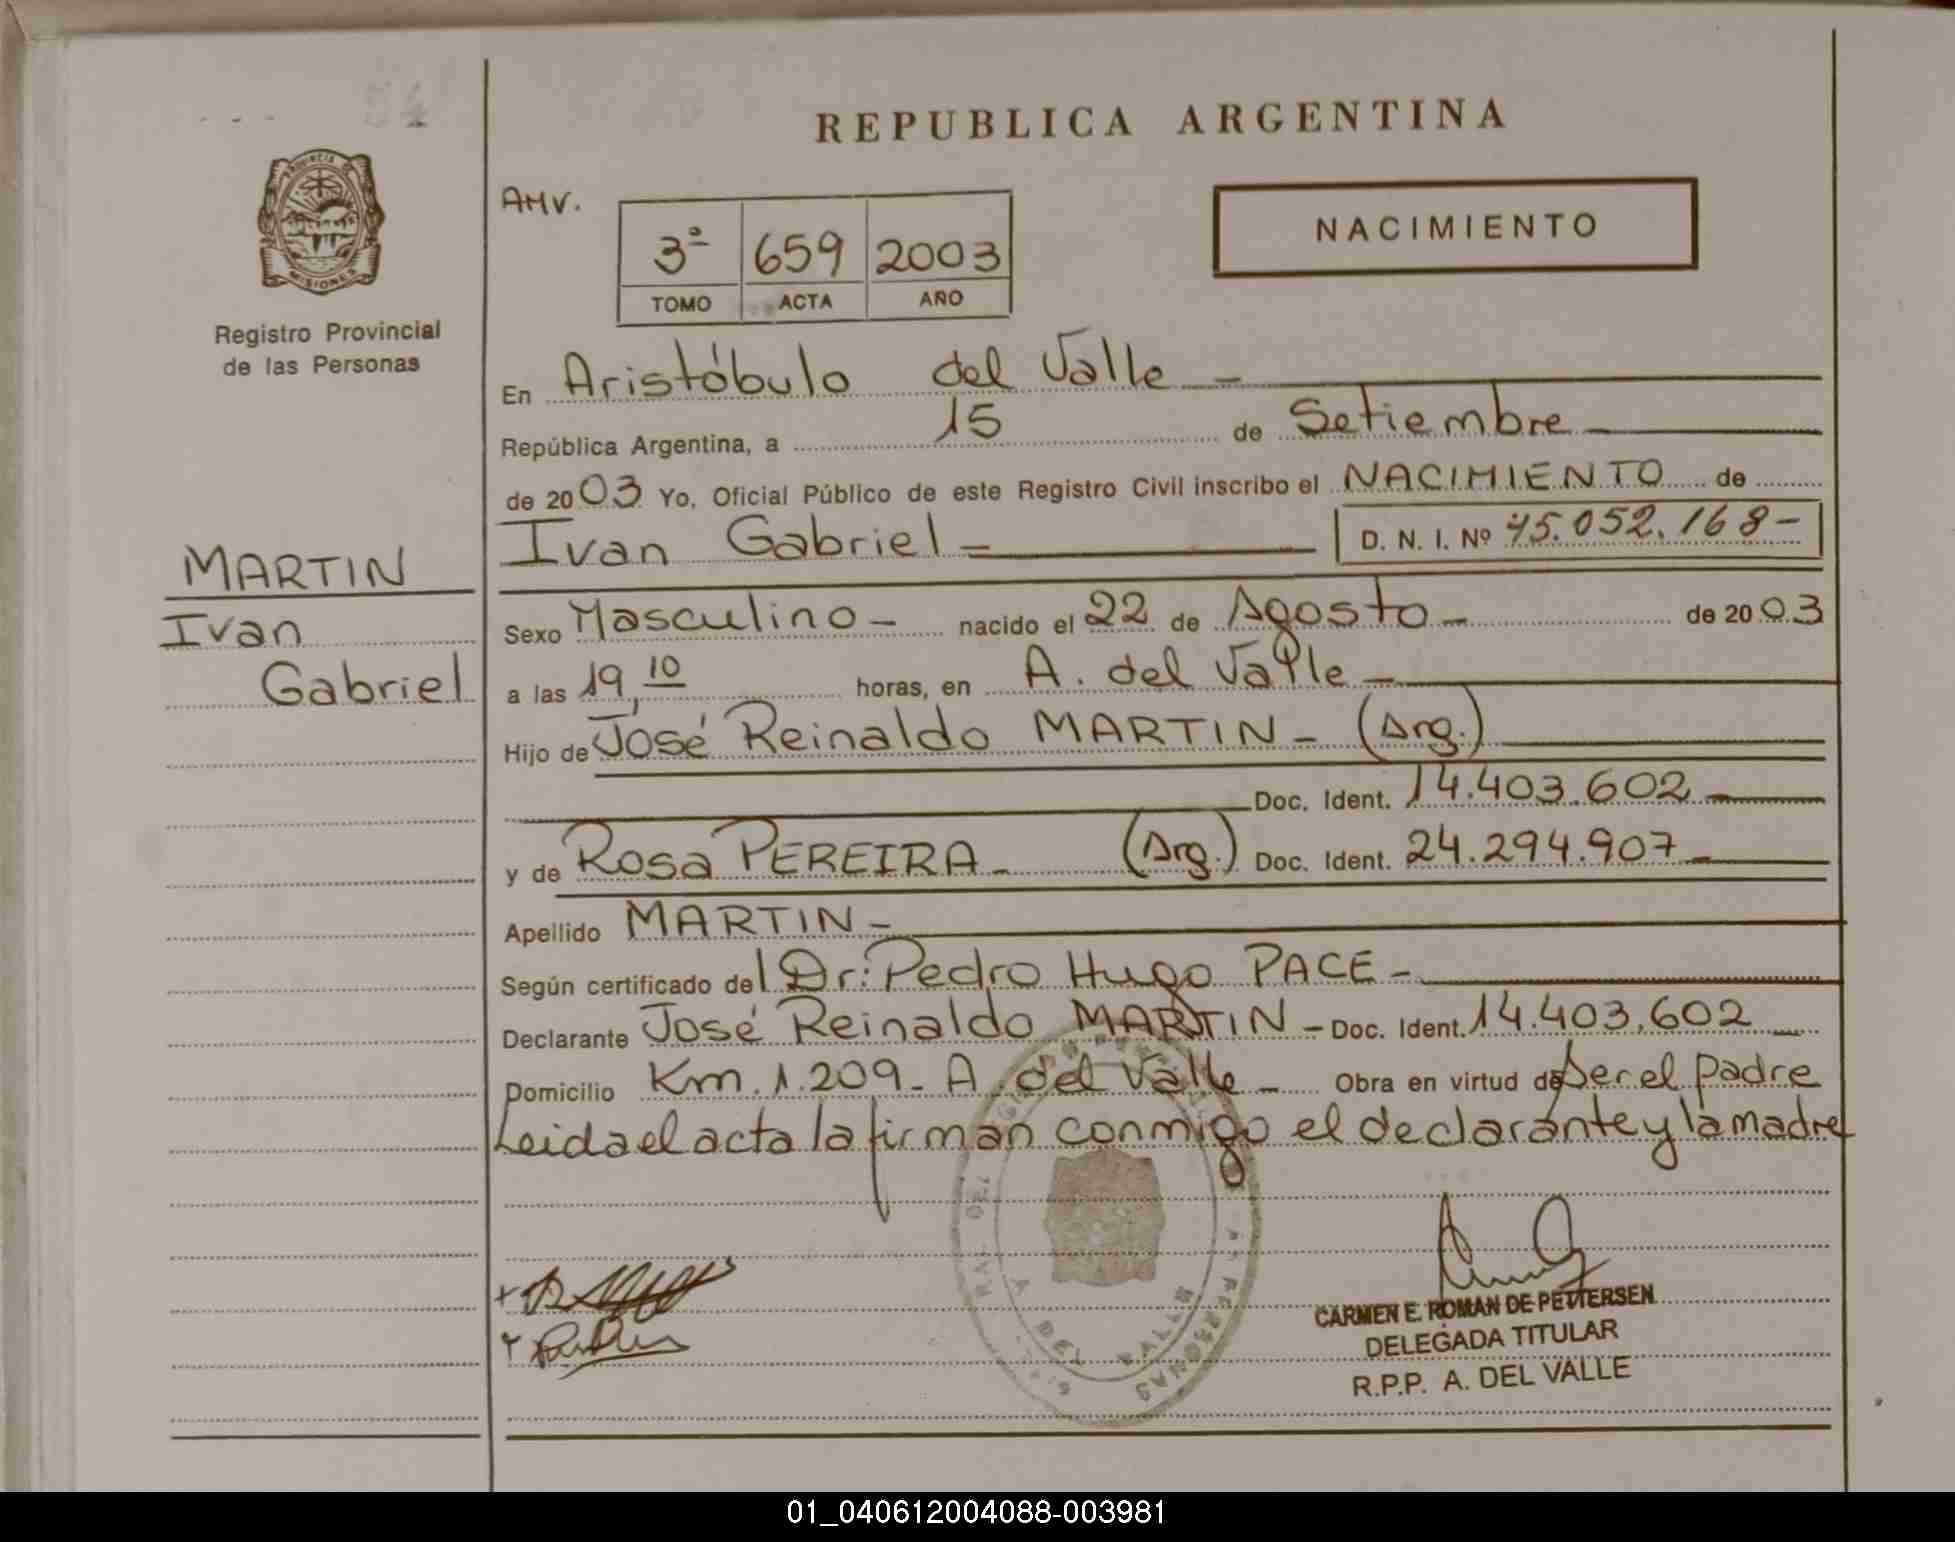 54
REPUBLICA ARGENTINA
PROVINCIA DE
MISIONES
Registro Provincial
de las Personas
AHV.
3º 659 2003
TOMO ACTA AÑO
NACIMIENTO
En Aristóbulo del Valle -
República Argentina, a 15 de Setiembre -
de 2003 Yo, Oficial Público de este Registro Civil inscribo el NACIMIENTO de
Ivan Gabriel - D. N. I. Nº 45.052.168-
MARTIN
Ivan
Gabriel
Sexo Masculino - nacido el 22 de Agosto - de 2003
a las 19,10 horas, en A. del Valle -
Hijo de José Reinaldo MARTIN - (Arg.)
Doc. Ident. 14.403.602 -
y de Rosa PEREIRA - (Arg.) Doc. Ident. 24.294.907 -
Apellido MARTIN -
Según certificado del Dr: Pedro Hugo PACE -
Declarante José Reinaldo MARTIN - Doc. Ident. 14.403.602
Domicilio Km. 1.209 - A. del Valle - Obra en virtud de Ser el padre
Leida el acta la firman conmigo el declarante y la madre
A DEL VALLE
CARMEN E. ROMAN DE PETTERSEN
DELEGADA TITULAR
R.P.P. A. DEL VALLE
01_040612004088-003981